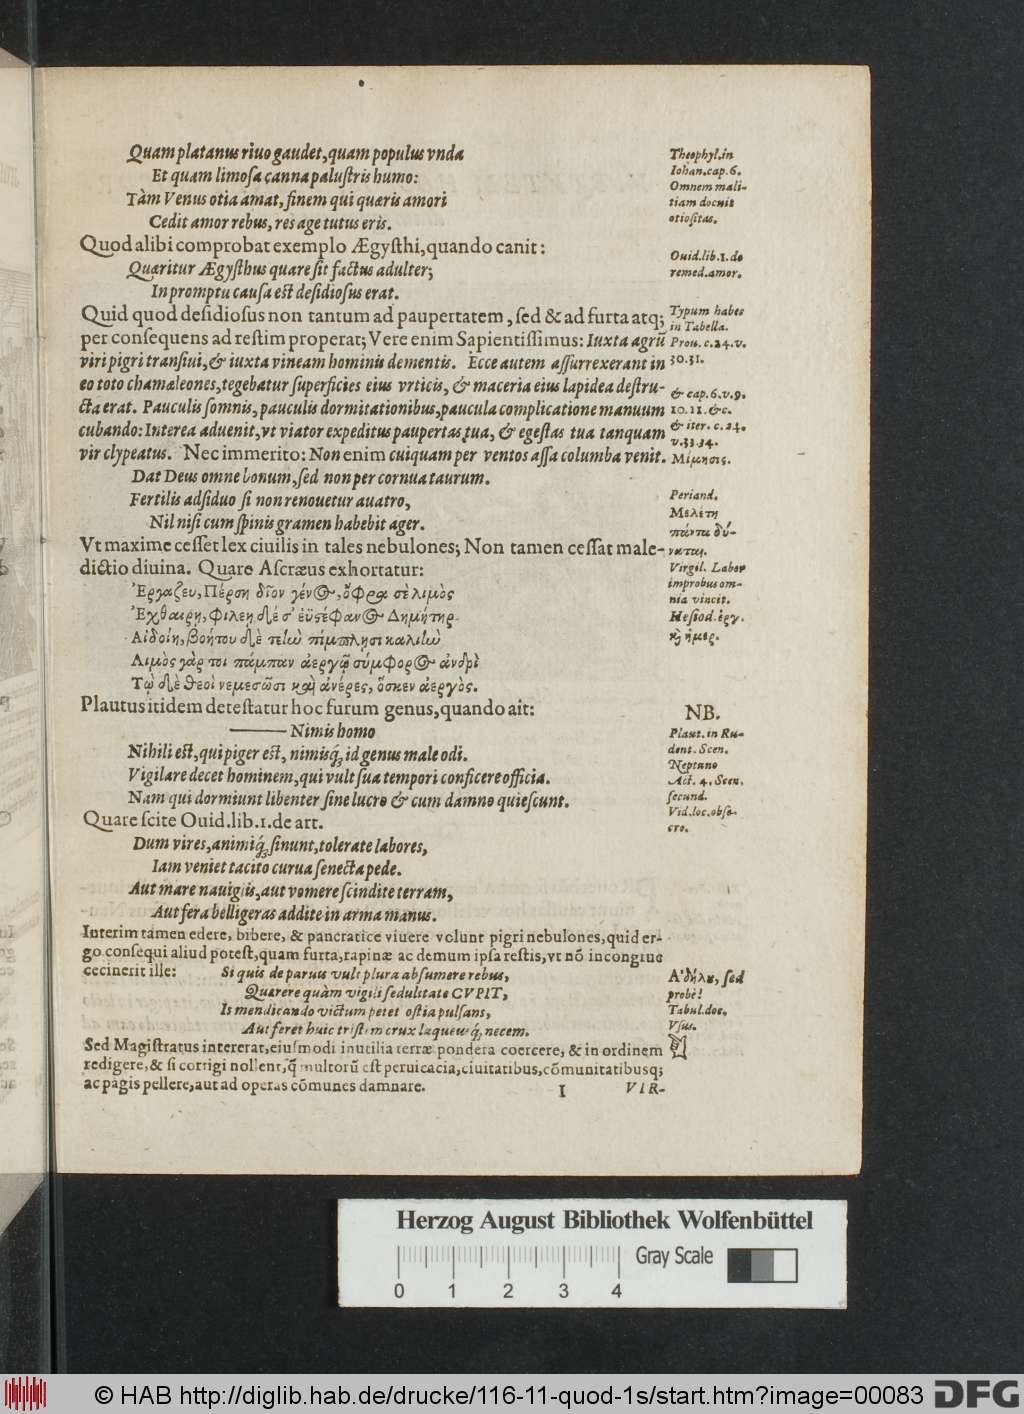 Quam platanus riuo gaudet, quam populus vnda
Et quam limosa canna palustris humo:
Tàm Venus otia amat, finem qui quæris amori
Cedit amor rebus, res age tutus eris.
Quod alibi comprobat exemplo Ægysthi, quando canit:
Quæritur Ægysthus quare sit factus adulter;
In promptu causa est desidiosus erat.
Quid quod desidiosus non tantum ad paupertatem, sed & ad furta atq;
per consequens ad restim properat; Vere enim Sapientissimus: Iuxta agrũ
viri pigri transiui, & iuxta vineam hominis dementis. Ecce autem assurrexerant in
eo toto chamæleones, tegebatur superficies eius vrticis, & maceria eius lapidea destru-
cta erat. Pauculis somnis, pauculis dormitationibus, paucula complicatione manuum
cubando: Interea aduenit, vt viator expeditus paupertas tua, & egestas tua tanquam
vir clypeatus. Nec immerito: Non enim cuiquam per ventos assa columba venit.
Dat Deus omne bonum, sed non per cornua taurum.
Fertilis adsiduo si non renouetur auatro,
Nil nisi cum spinis gramen habebit ager.
Vt maxime cesset lex ciuilis in tales nebulones; Non tamen cessat male-
dictio diuina. Quare Ascræus exhortatur:
Ἐργάζευ, Πέρση δῖον γένος, ὄφρα σὲ λιμὸς
Ἐχθαιρῃ, φιλεῃ δέ σ' ἐϋστέφανος Δημήτηρ
Αἰδοίη, βοήτου δὲ τεὴν πίμπλησι καλιὴν
Λιμὸς γὰρ τοι πάμπαν ἀεργῷ σύμφορος ἀνδρὶ
Τῷ δὲ θεοὶ νεμεσῶσι καὶ ἀνέρες, ὅσκεν ἀεργὸς.
Plautus itidem detestatur hoc furum genus, quando ait:
Nimis homo
Nihili est, qui piger est, nimisq́; id genus male odi.
Vigilare decet hominem, qui vult sua tempori conficere officia.
Nam qui dormiunt libenter sine lucro & cum damno quiescunt.
Quare scite Ouid. lib. 1. de art.
Dum vires, animiq́; sinunt, tolerate labores,
Iam veniet tacito curua senecta pede.
Aut mare nauigiis, aut vomere scindite terram,
Aut fera belligeras addite in arma manus.
Interim tamen edere, bibere, & pancratice viuere volunt pigri nebulones, quid er-
go consequi aliud potest, quam furta, rapinæ ac demum ipsa restis, vt nõ incongrue
cecinerit ille: Si quis de paruis vult plura absumere rebus,
Quærere quàm vigili sedulitate CVPIT,
Is mendicando victum petet ostia pulsans,
Aut feret huic tristem crux laqueusq́; necem.
Sed Magistratus intererat, eiusmodi inutilia terræ pondera coercere, & in ordinem
redigere, & si corrigi nollent, q̃ multorũ est peruicacia, ciuitatibus, cõmunitatibusq;
ac pagis pellere, aut ad operas cõmunes damnare.
I VIR-
Theophyl. in
Iohan. cap. 6.
Omnem mali-
tiam docuit
otiositas.
Ouid. lib. 1. de
remed. amor.
Typum habes
in Tabella.
Prou. c. 24. v.
30. 31.
& cap. 6. v. 9.
10. 11. &c.
& iter. c. 24.
v. 33 34.
Μίμησις.
Periand.
Μελέτη
πάντα δύ-
ναται.
Virgil. Labor
improbus om-
nia vincit.
Hesiod. ἐργ.
κ̀ ἡμερ.
NB.
Plaut. in Ru-
dent. Scen.
Neptuno
Act. 4. Scen.
secund.
Vid. loc. obse-
cro.
Ἀδήλῳ, sed
probè!
Tabul. doc.
Vsus.
Herzog August Bibliothek Wolfenbüttel
Gray Scale
0 1 2 3 4
© HAB http://diglib.hab.de/drucke/116-11-quod-1s/start.htm?image=00083
DFG